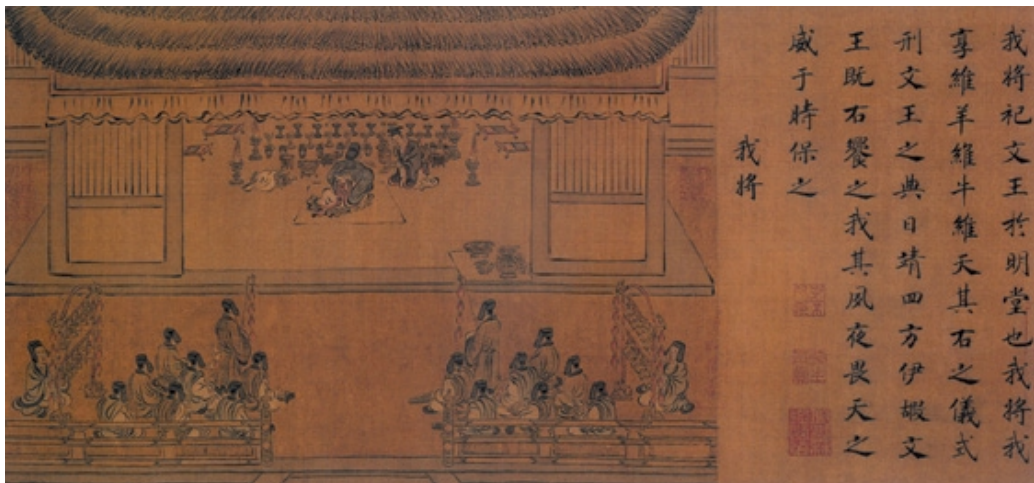 我將祀文王於明堂也我將我
享維羊維牛維天其右之儀式
刑文王之典日靖四方伊嘏文
王既右饗之我其夙夜畏天之
威于時保之
我將